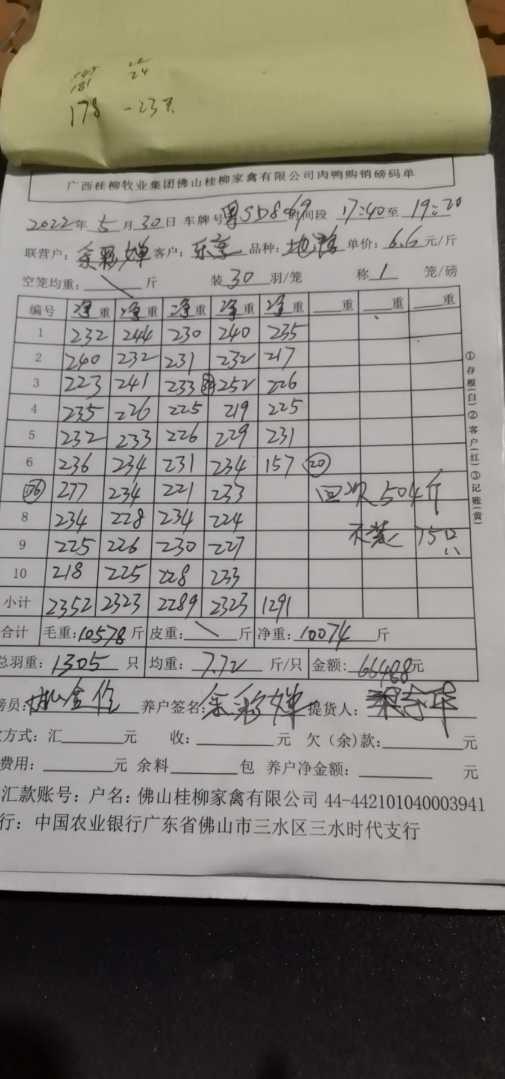 178 -23只
广西桂柳牧业集团佛山桂柳家禽有限公司肉鸭购销磅码单
2022年 5 月 30 日 车牌号 粤SD8 69 时间段 17:40 至 19:20
联营户: 余彩婵 客户: 东莞 品种: 单价: 6.6 元/斤
空笼均重: 斤 装 30 羽/笼 称 1 笼/磅
编号 净重 净重 净重 净重 净重 重 重 重
1 232 244 230 240 235
2 240 232 231 232 217
3 223 241 233 252 226
4 235 226 225 219 225
5 232 233 226 229 231
6 236 234 231 234 157 20
36 277 234 221 233 回 504斤
8 234 228 234 224 75只
9 225 226 230 227
10 218 225 228 233
小计 2352 2323 2289 2323 1291
合计 毛重: 10578 斤 皮重: 斤 净重: 10074 斤
总羽重: 1305 只 均重: 7.72 斤/只 金额: 66488元
磅员: 养户签名: 余彩婵 提货人:
方式: 汇 元 收: 元 欠(余)款: 元
费用: 元 余料 包 养户净金额: 元
汇款账号: 户名: 佛山桂柳家禽有限公司 44-442101040003941
行: 中国农业银行广东省佛山市三水区三水时代支行
①存根(白)②客户(红)③记账(黄)